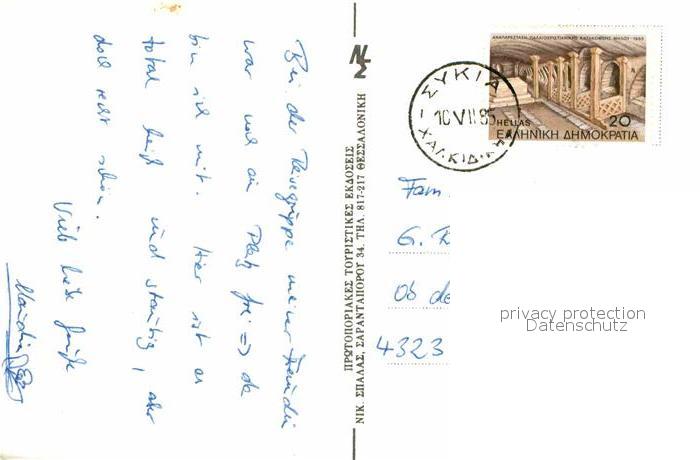 Bei der Reisegruppe meiner Freundin
war noch ein Platz frei => da
bin ich mit. Hier ist es
total heiß und staubig, aber
doch recht schön.
Viele liebe Grüße
Claudia
ΠΡΩΤΟΠΟΡΙΑΚΕΣ ΤΟΥΡΙΣΤΙΚΕΣ ΕΚΔΟΣΕΙΣ
ΝΙΚ. ΣΠΑΛΑΣ, ΣΑΡΑΝΤΑΠΟΡΟΥ 34, ΤΗΛ. 817-217 ΘΕΣΣΑΛΟΝΙΚΗ
ΑΝΑΠΑΡΑΣΤΑΣΗ ΠΑΛΑΙΟΧΡΙΣΤΙΑΝΙΚΗΣ ΚΑΤΑΚΟΜΒΗΣ ΜΗΛΟΥ
20
HELLAS
ΕΛΛΗΝΙΚΗ ΔΗΜΟΚΡΑΤΙΑ
ΣΥΚΙΑ
10 VII 85
ΧΑΛΚΙΔΙΚΗΣ
Fam.
G.
Ob de
4323
privacy protection
Datenschutz